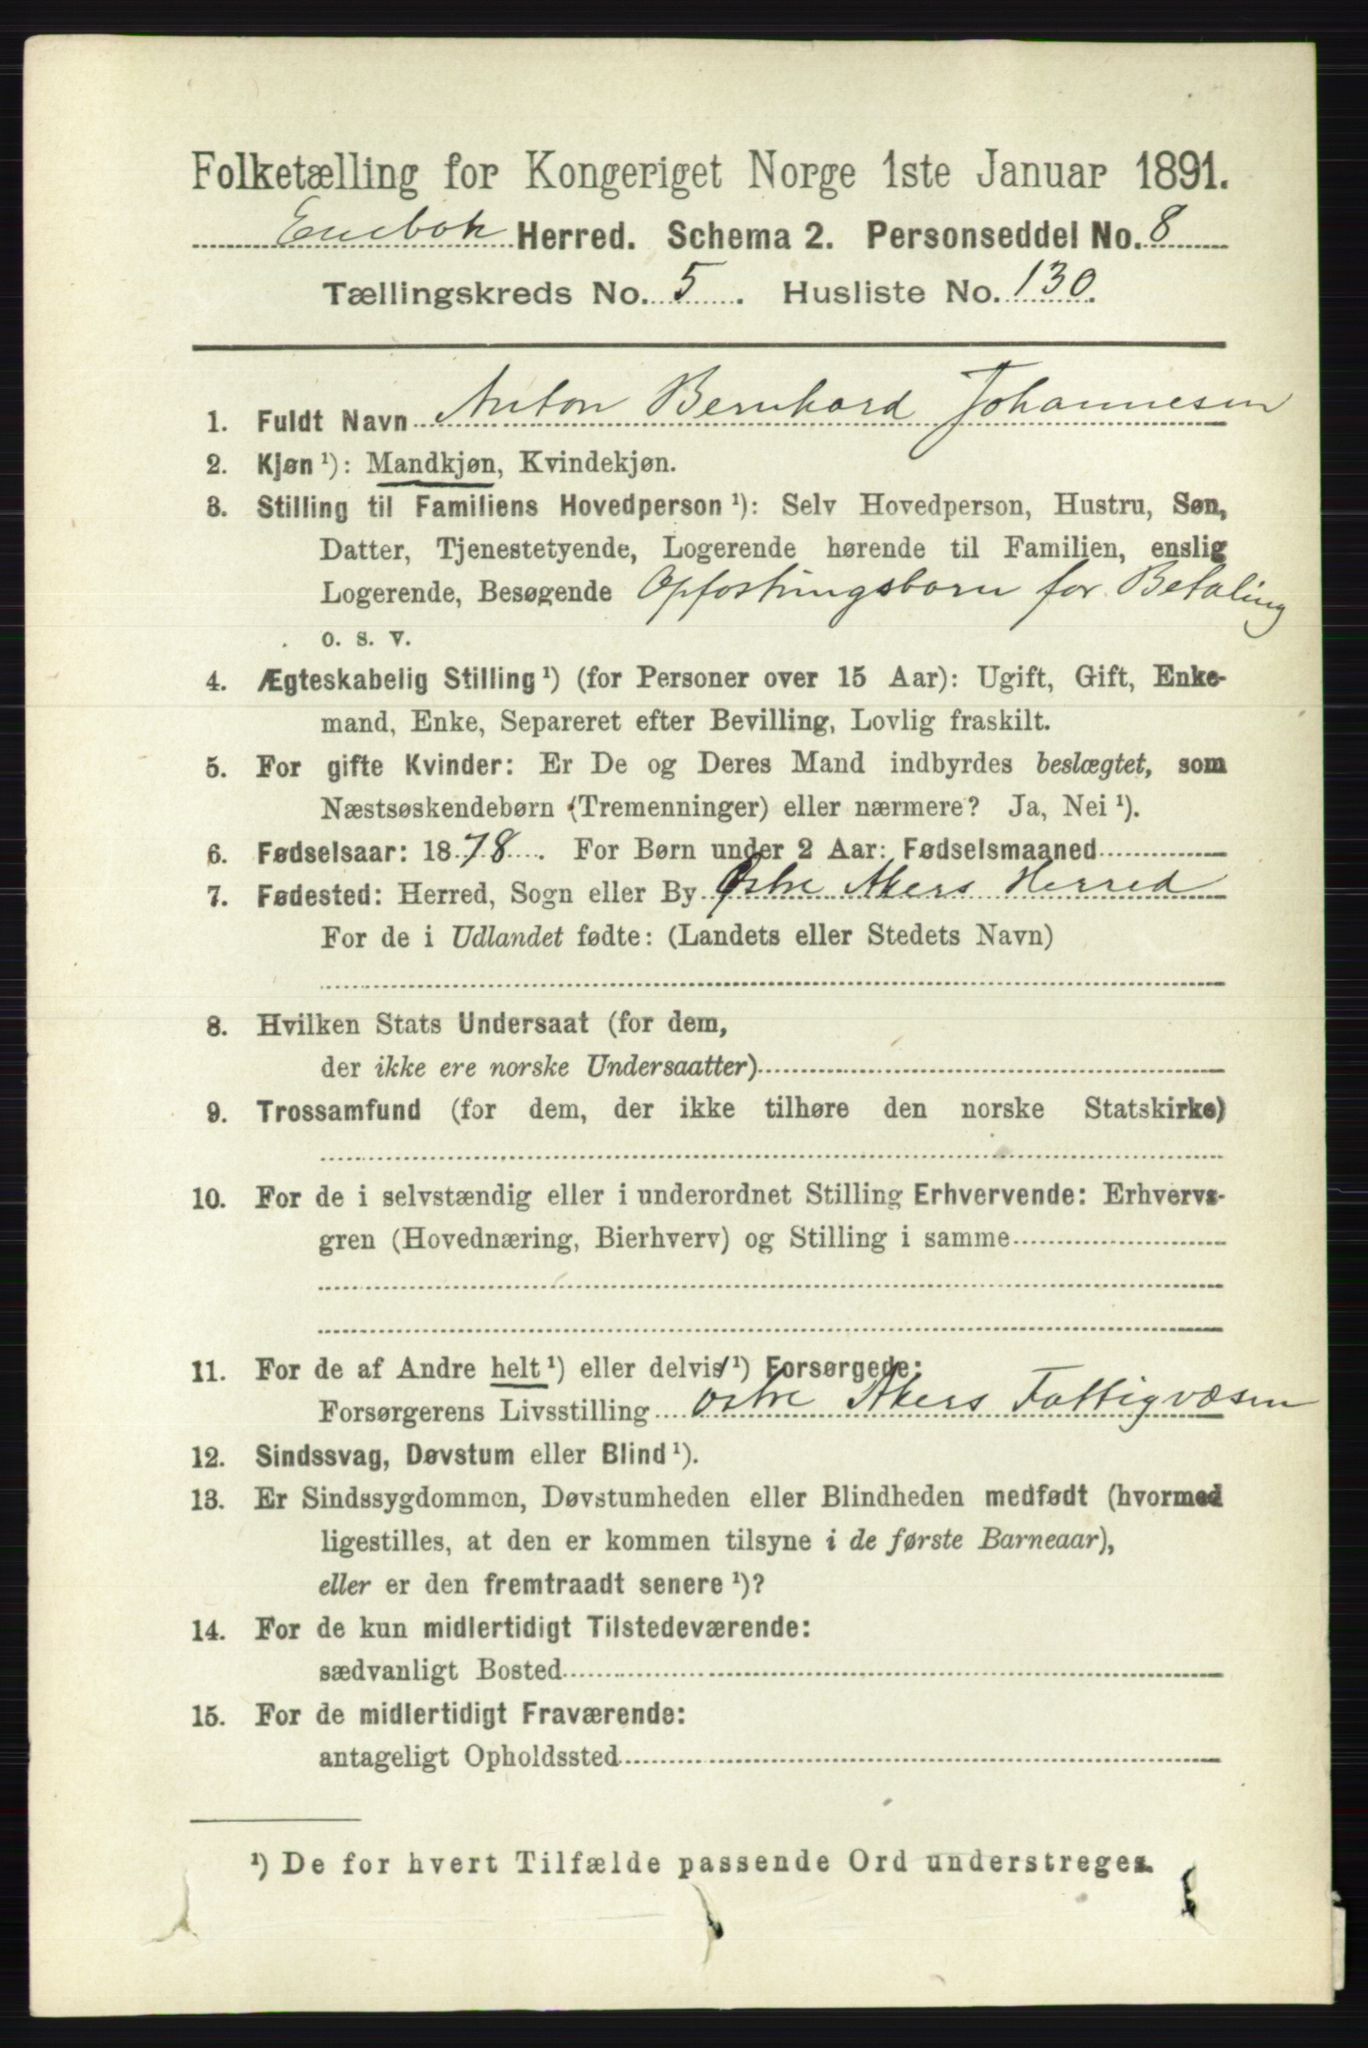 Folketælling for Kongeriget Norge 1ste Januar 1891.
Enebak Herred. Schema 2. Personseddel No. 8
Tællingskreds No. 5. Husliste No. 130.
1. Fuldt Navn Anton Bernhard Johannesen
2. Kjøn ¹): Mandkjøn, Kvindekjøn.
3. Stilling til Familiens Hovedperson ¹): Selv Hovedperson, Hustru, Søn,
Datter, Tjenestetyende, Logerende hørende til Familien, enslig
Logerende, Besøgende Opfostringsbarn for Betaling
o. s. v.
4. Ægteskabelig Stilling ¹) (for Personer over 15 Aar): Ugift, Gift, Enke-
mand, Enke, Separeret efter Bevilling, Lovlig fraskilt.
5. For gifte Kvinder: Er De og Deres Mand indbyrdes beslægtet, som
Næstsøskendebørn (Tremenninger) eller nærmere? Ja, Nei ¹).
6. Fødselsaar: 1878. For Børn under 2 Aar: Fødselsmaaned
7. Fødested: Herred, Sogn eller By Østre Akers Herred
For de i Udlandet fødte: (Landets eller Stedets Navn)
8. Hvilken Stats Undersaat (for dem,
der ikke ere norske Undersaatter)
9. Trossamfund (for dem, der ikke tilhøre den norske Statskirke)
10. For de i selvstændig eller i underordnet Stilling Erhvervende: Erhvervs-
gren (Hovednæring, Bierhverv) og Stilling i samme
11. For de af Andre helt ¹) eller delvis ¹) Forsørgede:
Forsørgerens Livsstilling Østre Akers Fattigvæsen
12. Sindssvag, Døvstum eller Blind ¹).
13. Er Sindssygdommen, Døvstumheden eller Blindheden medfødt (hvormed
ligestilles, at den er kommen tilsyne i de første Barneaar),
eller er den fremtraadt senere ¹)?
14. For de kun midlertidigt Tilstedeværende:
sædvanligt Bosted
15. For de midlertidigt Fraværende:
antageligt Opholdssted
¹) De for hvert Tilfælde passende Ord understreges.